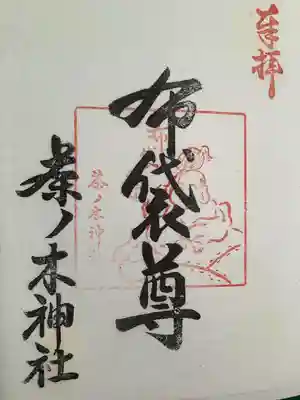 奉拝
布袋尊
茶ノ木神社
布
茶ノ木神